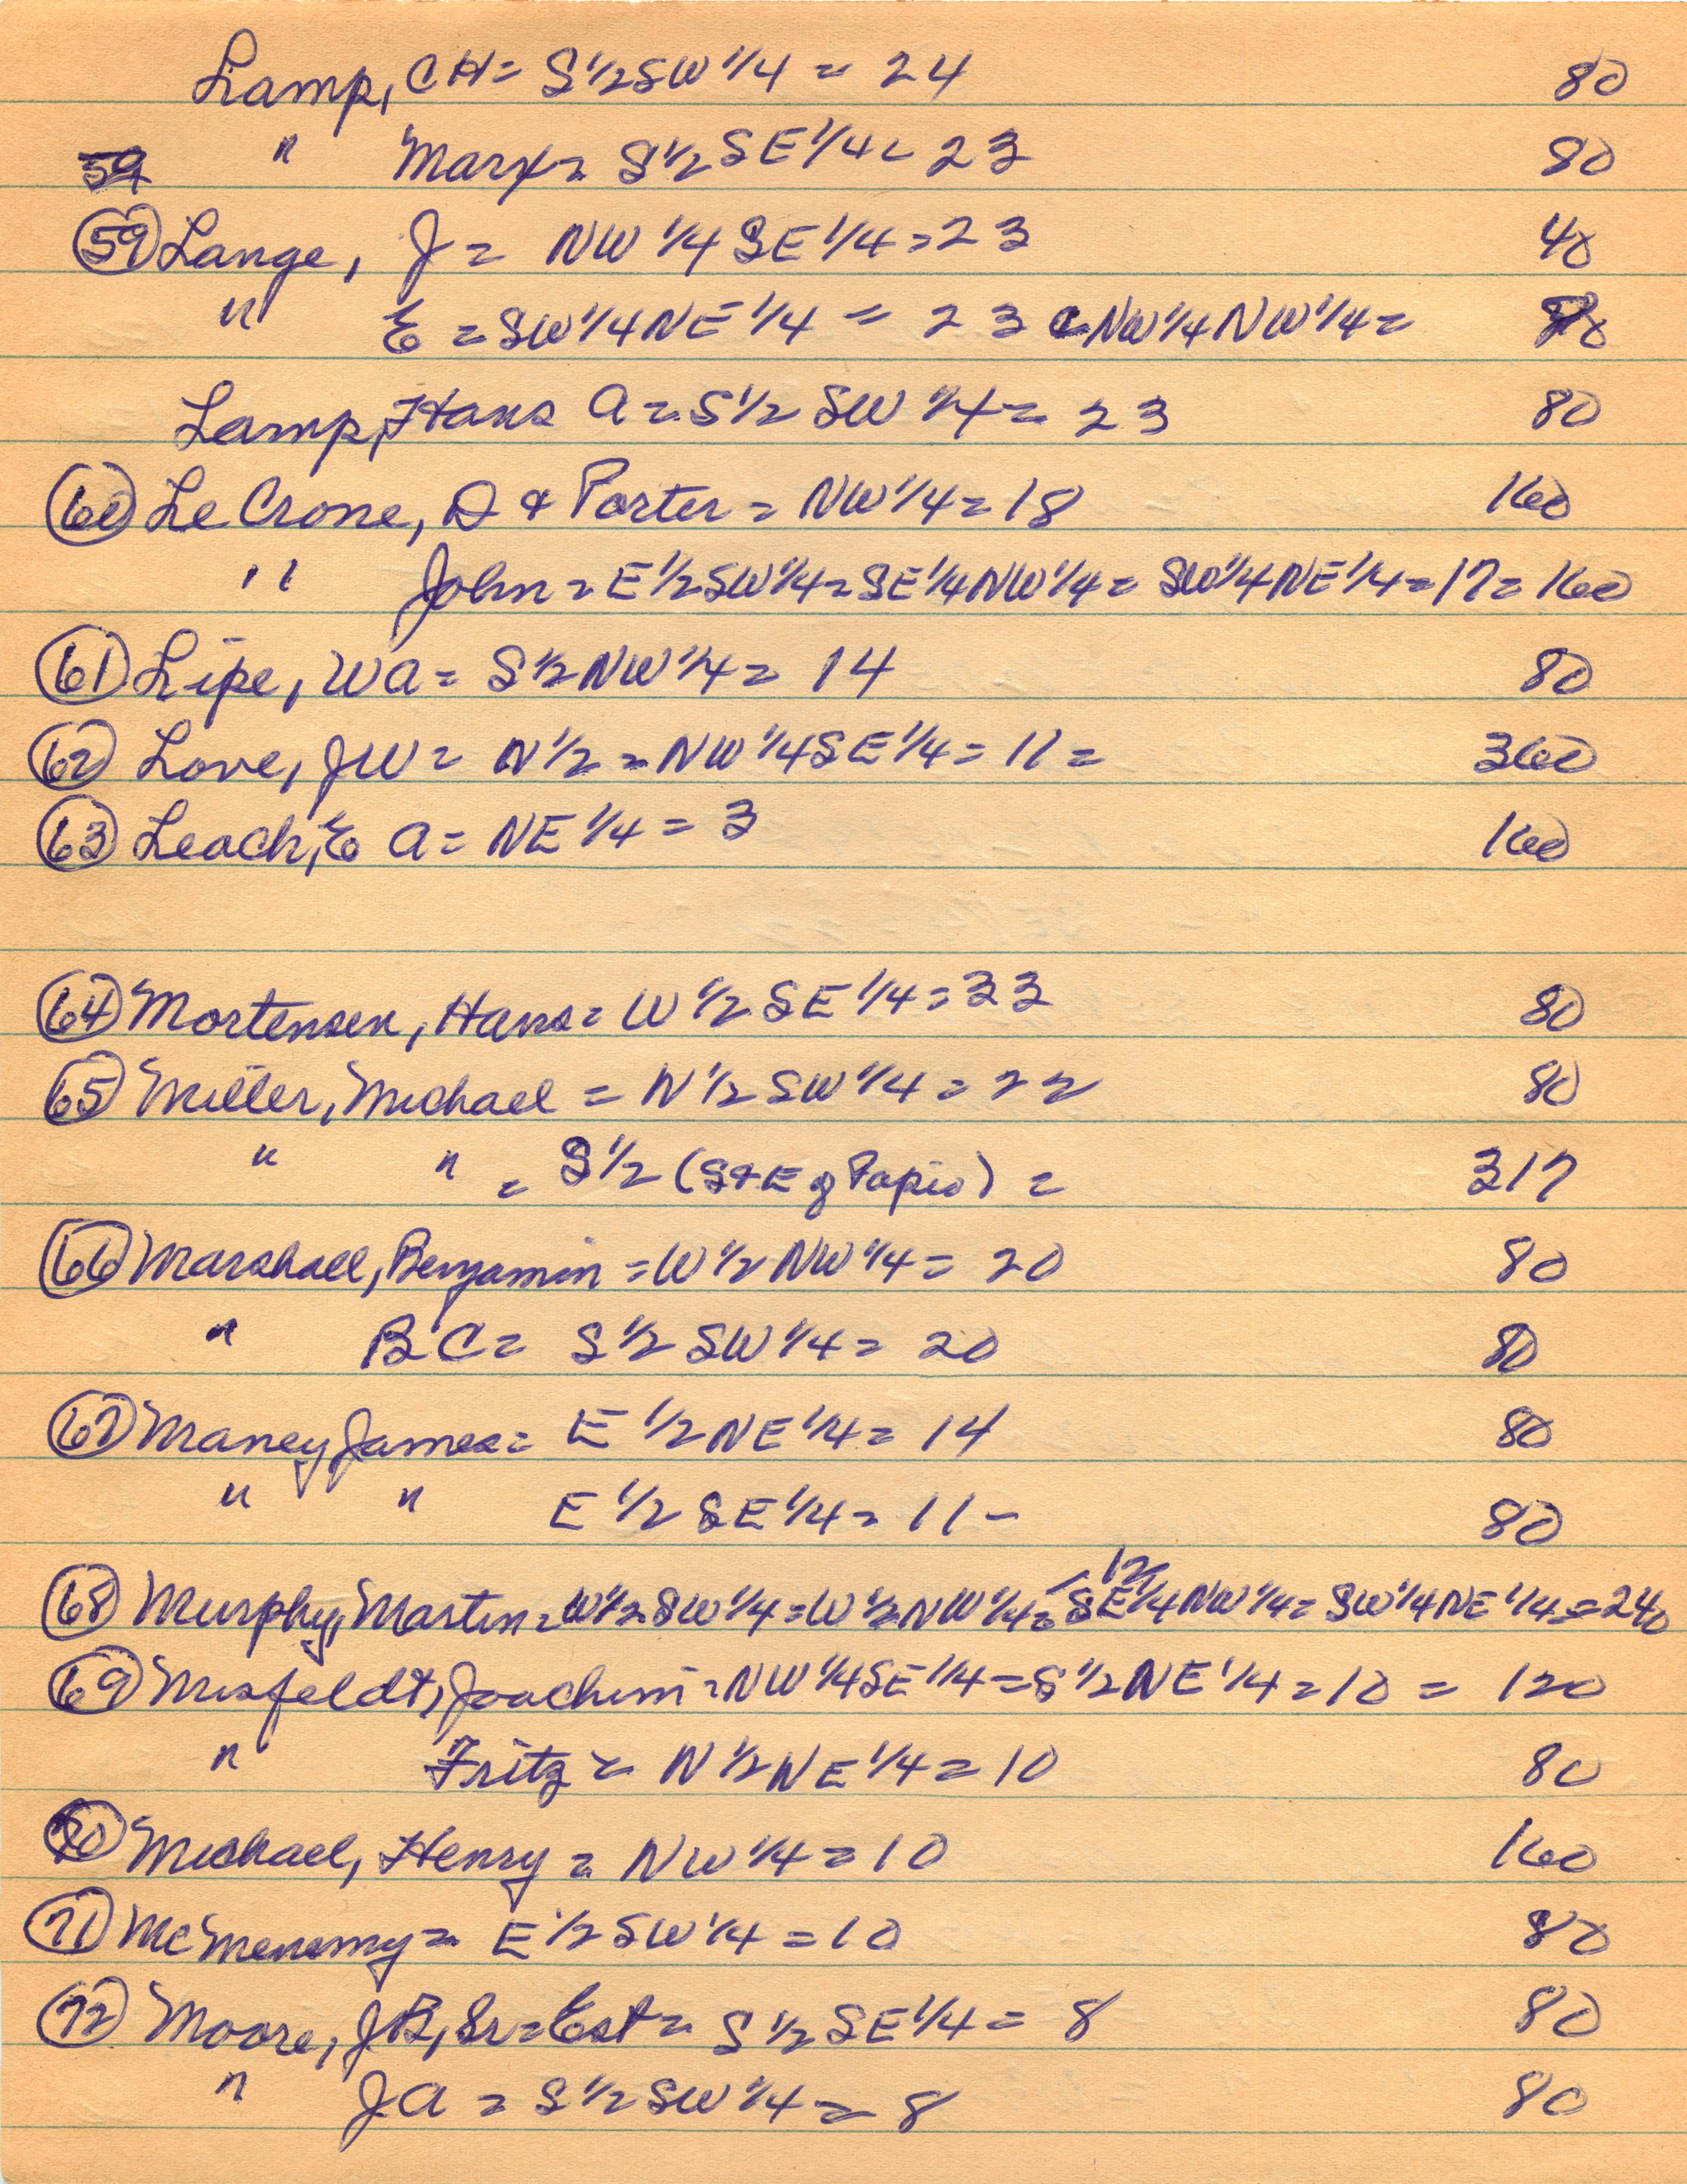 Lamp, CH = S 1/2 SW 1/4 = 24 80
59 " Marx = S 1/2 SE 1/4 = 23 80
59 Lange, J = NW 1/4 SE 1/4 = 23 40
" E = SW 1/4 NE 1/4 = 23 & NW 1/4 NW 1/4 = 80
Lamp, Hans A = S 1/2 SW 1/4 = 23 80
60 Le Crone, D & Porter = NW 1/4 = 18 160
" John = E 1/2 SW 1/4 = SE 1/4 NW 1/4 = SW 1/4 NE 1/4 = 17 = 160
61 Lipe, WA = S 1/2 NW 1/4 = 14 80
62 Love, JW = N 1/2 = NW 1/4 SE 1/4 = 11 = 360
63 Leach, E A = NE 1/4 = 3 160
64 Mortensen, Hans = W 1/2 SE 1/4 = 33 80
65 Miller, Michael = N 1/2 SW 1/4 = 22 80
" " = S 1/2 (S & E of Papio) = 317
66 Marshall, Benjamin = W 1/2 NW 1/4 = 20 80
" B C = S 1/2 SW 1/4 = 20 80
67 Maney James = E 1/2 NE 1/4 = 14 80
" " E 1/2 SE 1/4 = 11 - 80
12/
68 Murphy, Martin = W 1/2 SW 1/4 = W 1/2 NW 1/4 = / SE 1/4 NW 1/4 = SW 1/4 NE 1/4 = 240
69 Misfeldt, Joachim = NW 1/4 SE 1/4 = S 1/2 NE 1/4 = 10 = 120
" Fritz = N 1/2 NE 1/4 = 10 80
70 Michael, Henry = NW 1/4 = 10 160
71 McMenemy = E 1/2 SW 1/4 = 10 80
72 Moore, JB, Sr = Est = S 1/2 SE 1/4 = 8 80
" JA = S 1/2 SW 1/4 = 8 80